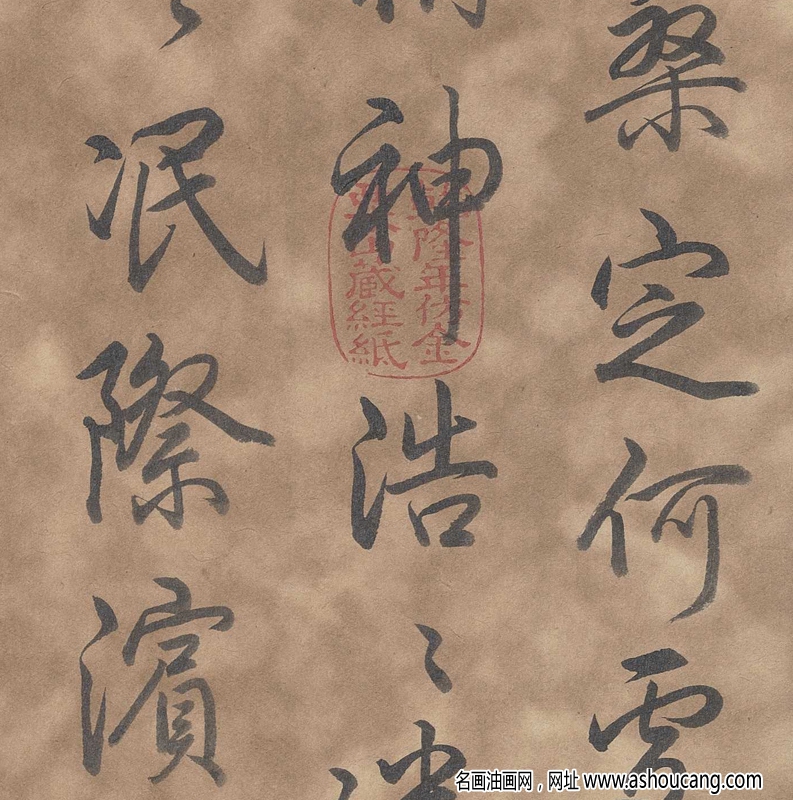 定何
神浩〻
泯際濱
乾隆年仿金
粟山藏經紙
名画油画网，网址 www.ashoucang.com